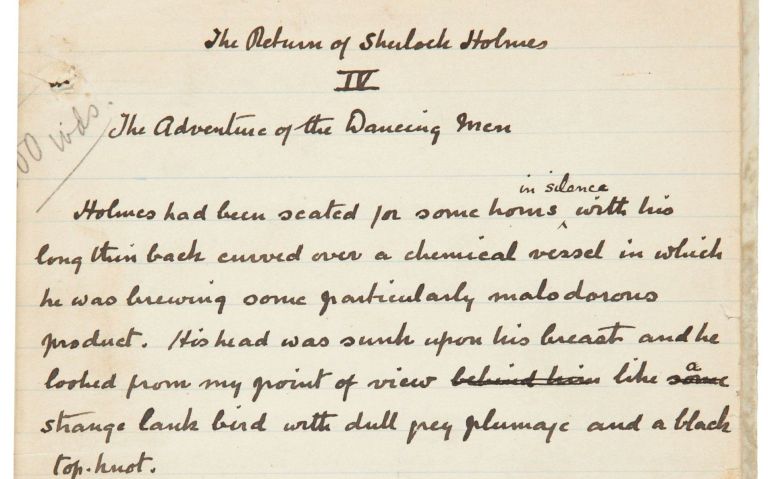 The Return of Sherlock Holmes
IV
The Adventure of the Dancing Men
00 wds.
in silence
Holmes had been seated for some hours ^ with his
long thin back curved over a chemical vessel in which
he was brewing some particularly malodorous
product. His head was sunk upon his breast and he
looked from my point of view behind him like some a
strange lank bird with dull grey plumage and a black
top-knot.